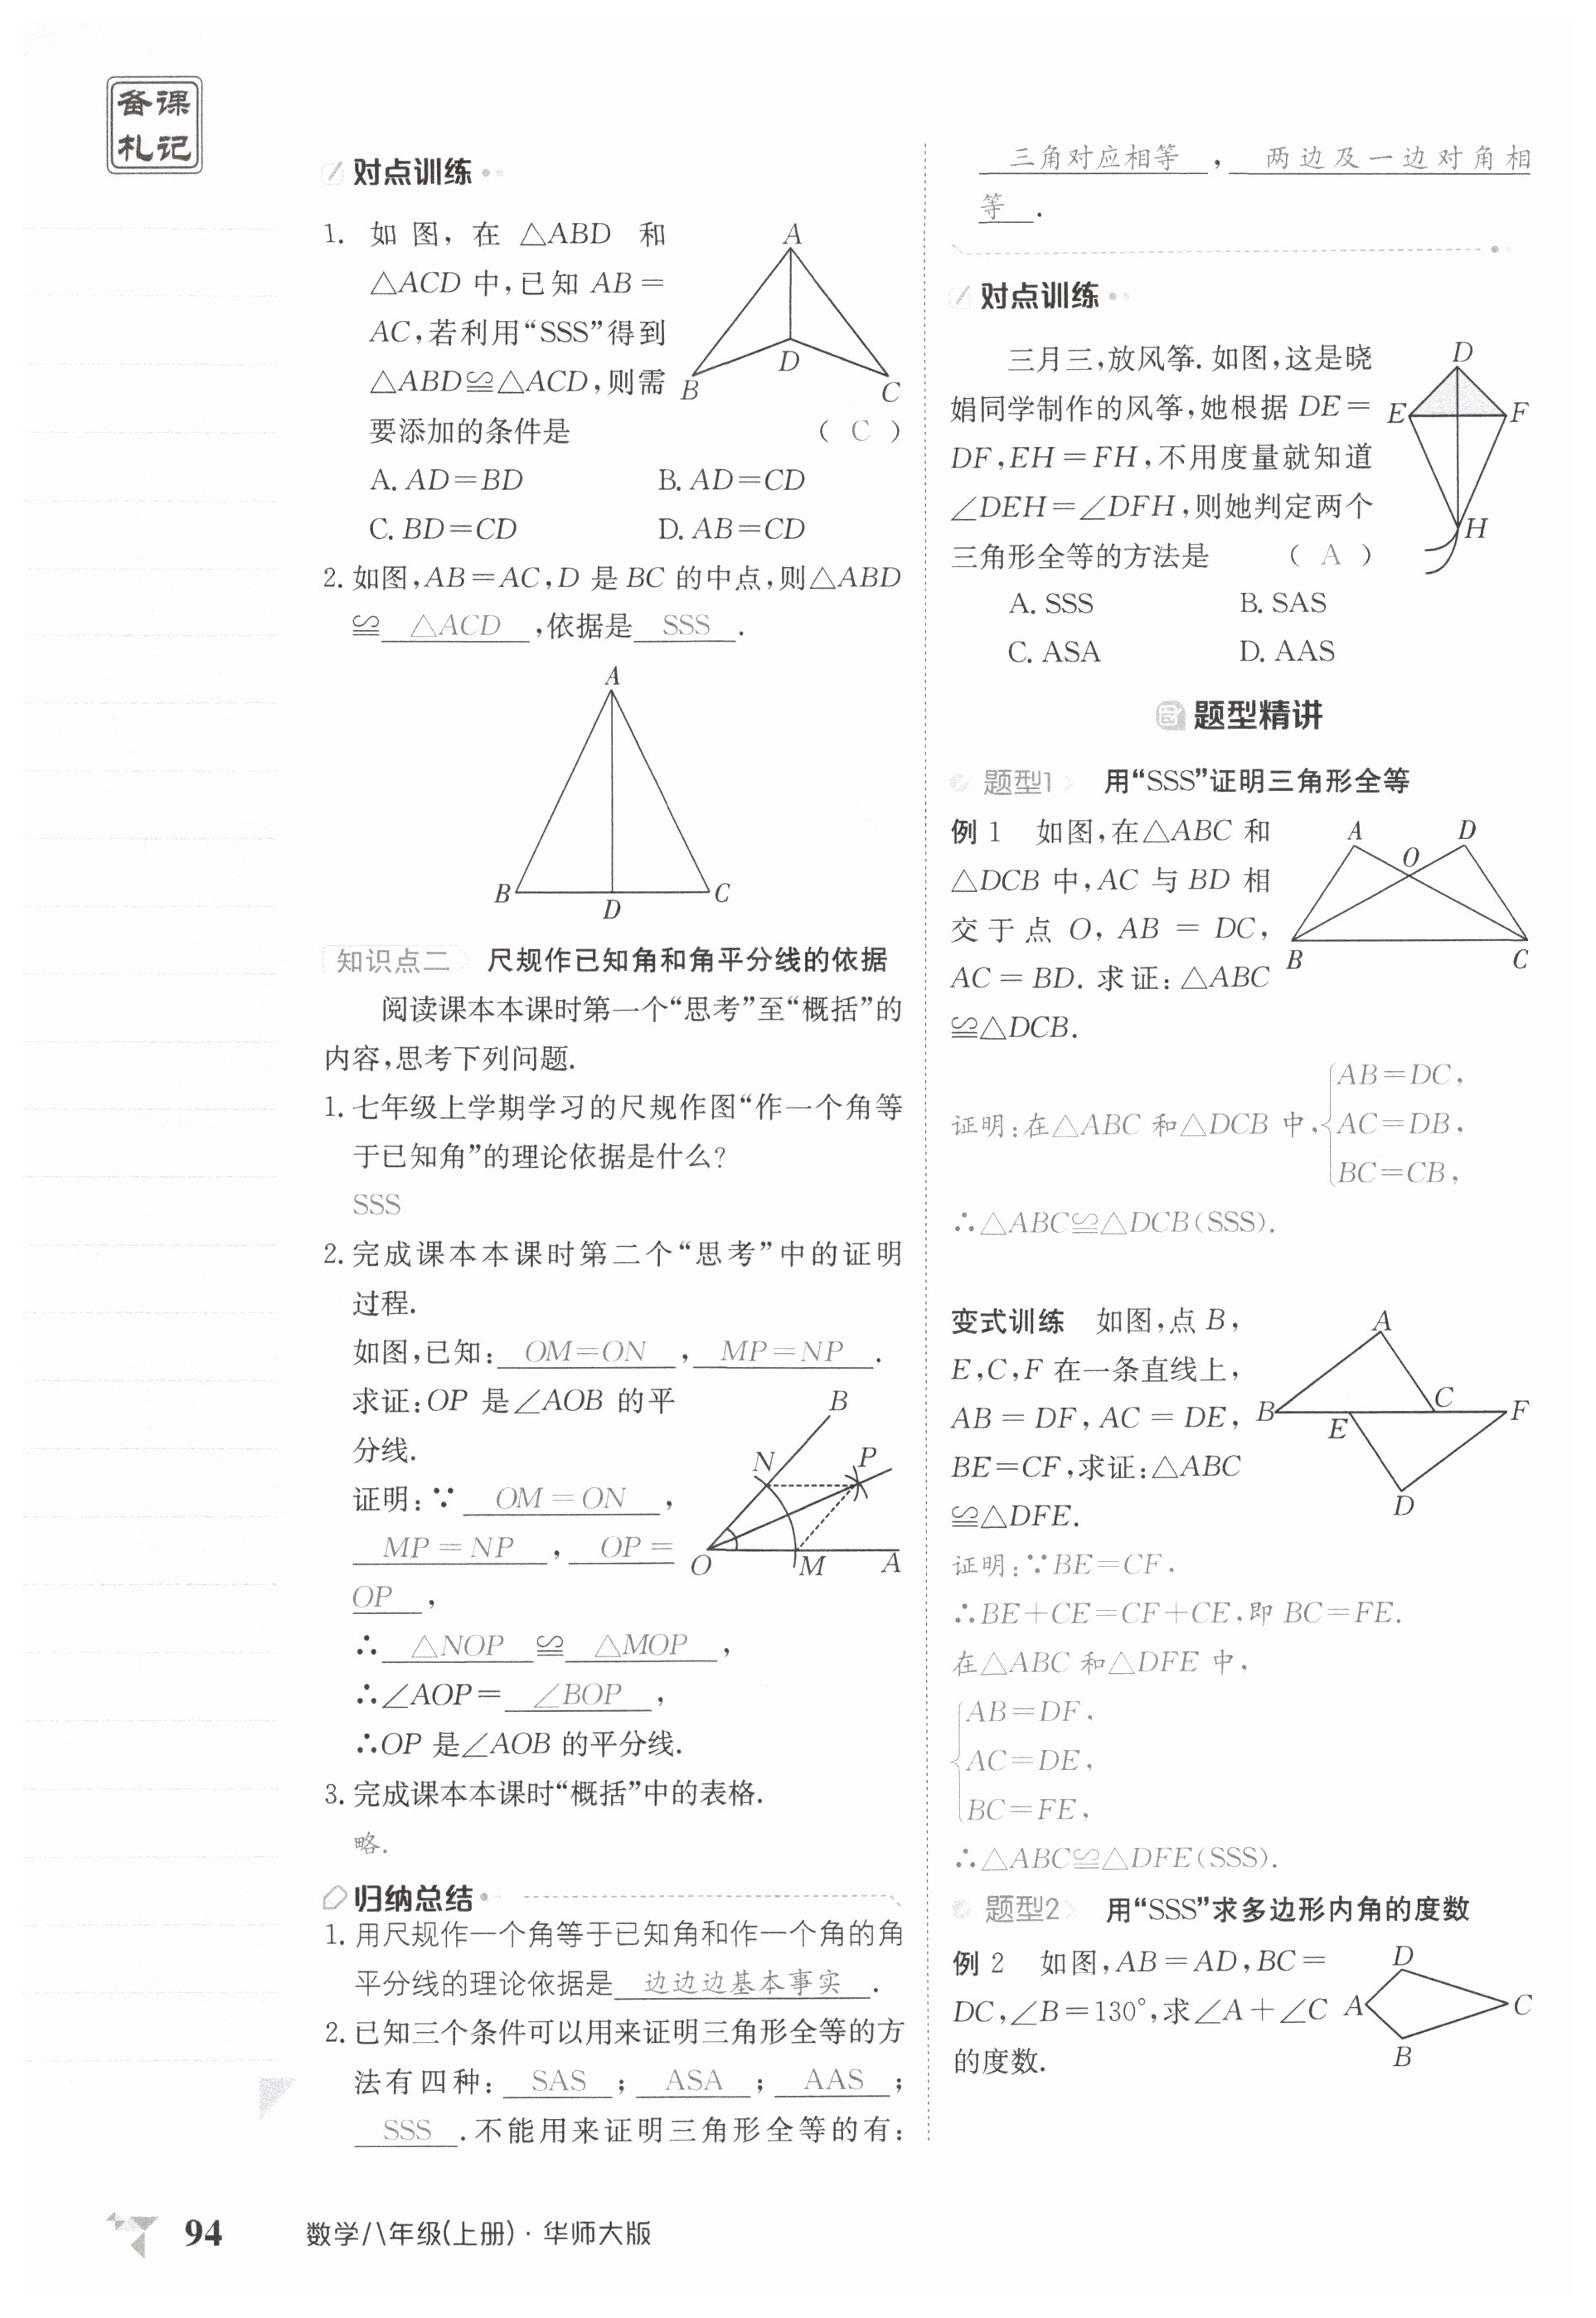 备课
札记
对点训练
1. 如图，在 △ABD 和
△ACD 中，已知 AB＝
AC，若利用“SSS”得到
△ABD≌△ACD，则需
要添加的条件是 （ C ）
A. AD＝BD B. AD＝CD
C. BD＝CD D. AB＝CD
A
B
D
C
2. 如图，AB＝AC，D 是 BC 的中点，则△ABD
≌ △ACD ，依据是 SSS ．
A
B
D
C
知识点二 尺规作已知角和角平分线的依据
阅读课本本课时第一个“思考”至“概括”的
内容，思考下列问题．
1. 七年级上学期学习的尺规作图“作一个角等
于已知角”的理论依据是什么？
SSS
2. 完成课本本课时第二个“思考”中的证明
过程．
如图，已知： OM＝ON ， MP＝NP ．
求证：OP 是∠AOB 的平
分线．
证明：∵ OM＝ON ，
MP＝NP ， OP＝
OP ，
B
N
P
O
M
A
∴ △NOP ≌ △MOP ，
∴∠AOP＝ ∠BOP ，
∴OP 是∠AOB 的平分线．
3. 完成课本本课时“概括”中的表格．
略．
归纳总结
1. 用尺规作一个角等于已知角和作一个角的角
平分线的理论依据是 边边边基本事实 ．
2. 已知三个条件可以用来证明三角形全等的方
法有四种： SAS ； ASA ； AAS ；
SSS ．不能用来证明三角形全等的有：
三角对应相等 ， 两边及一边对角相
等 ．
对点训练
三月三，放风筝．如图，这是晓
娟同学制作的风筝，她根据 DE＝
DF，EH＝FH，不用度量就知道
∠DEH＝∠DFH，则她判定两个
三角形全等的方法是 （ A ）
A. SSS B. SAS
C. ASA D. AAS
D
E
F
H
题型精讲
题型1 用“SSS”证明三角形全等
例 1 如图，在△ABC 和
△DCB 中，AC 与 BD 相
交于点 O，AB ＝ DC，
AC ＝ BD．求证：△ABC
≌△DCB．
A
D
O
B
C
AB＝DC，
证明：在△ABC 和△DCB 中，AC＝DB，
BC＝CB，
∴△ABC≌△DCB(SSS)．
变式训练 如图，点 B，
E，C，F 在一条直线上，
AB ＝ DF，AC ＝ DE，
BE＝CF，求证：△ABC
≌△DFE．
A
B
E
C
F
D
证明：∵BE＝CF，
∴BE＋CE＝CF＋CE，即 BC＝FE．
在△ABC 和△DFE 中，
AB＝DF，
AC＝DE，
BC＝FE，
∴△ABC≌△DFE(SSS)．
题型2 用“SSS”求多边形内角的度数
例 2 如图，AB＝AD，BC＝
DC，∠B＝130°，求∠A＋∠C
的度数．
D
A
C
B
94 数学/八年级(上册)·华师大版